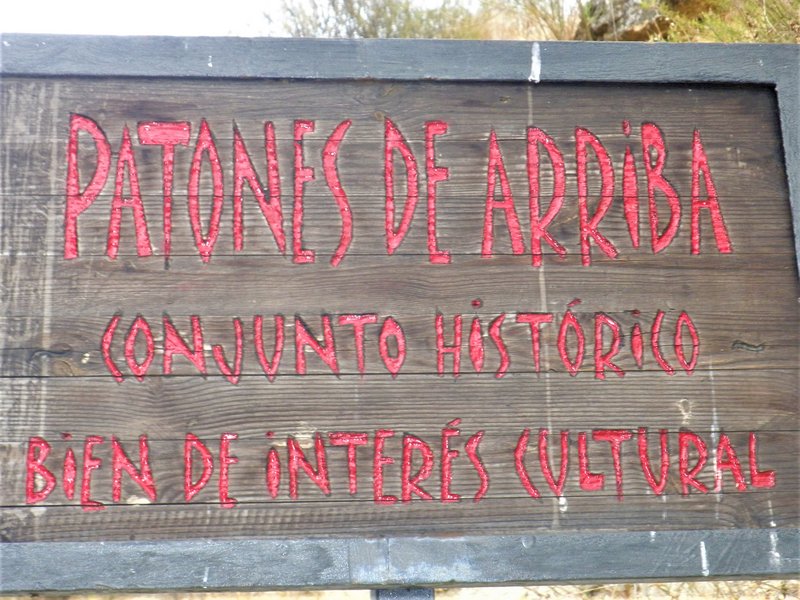 PATONES DE ARRiBA
CONJUNTO HiSTÓRiCO
BiEN DE iNTERÉS CULTURAL